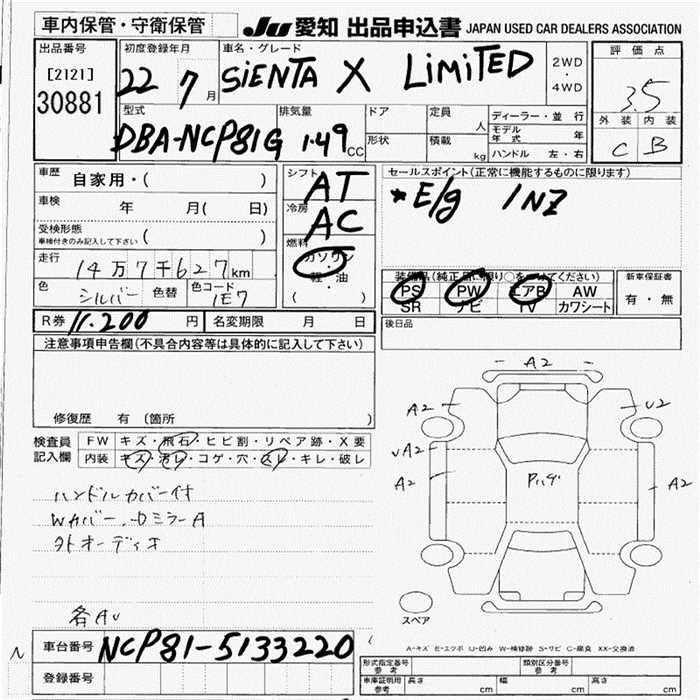 車内保管・守衛保管
JU 愛知 出品申込書 JAPAN USED CAR DEALERS ASSOCIATION
出品番号 初度登録年月 車名・グレード 2WD・4WD 評価点
[2121] 22 7月 SiENTA X LiMiTED 3.5
30881
型式 排気量 ドア 定員 人 ディーラー・並行 外装 内装
DBA-NCP81G 1.49 CC 形状 積載 kg モデル年式 年 C B
ハンドル 左・右
車歴 自家用・( ) シフト AT セールスポイント(正常に機能するものに限ります)
車検 年 月( 日) 冷房 AC *E/g 1NZ
受検形態 ( )
車検付きのみ記入して下さい
燃料 ガソリン・軽・油 ( )
走行 14万7千627km
装備品(純正品に限り○をつけてください) 新車保証書
色 シルバー 色替 色コード 1E7 PS PW エアB AW 有・無
SR ナビ TV カワシート
R券 11.200円 名変期限 月 日 後日品
注意事項申告欄(不具合内容等は具体的に記入して下さい)
修復歴 有 (箇所 )
検査員 FW キズ・飛石・ヒビ割・リペア跡・X要
記入欄 内装 キズ・汚レ・コゲ・穴・スレ・キレ・破レ
ハンドルカバー付
Wカバー、ロミラーA
外オーディオ
各AU
車台番号 NCP81-5133220
登録番号
A2
A2 U2
UA2
A2 A2
スペア
A-キズ E-エクボ U-凹み W-補修跡 S-サビ C-腐食 XX-交換済
形式指定番号 参考 類別区分番号 参考
車庫証明用 参考 長さ cm 幅 cm 高さ cm